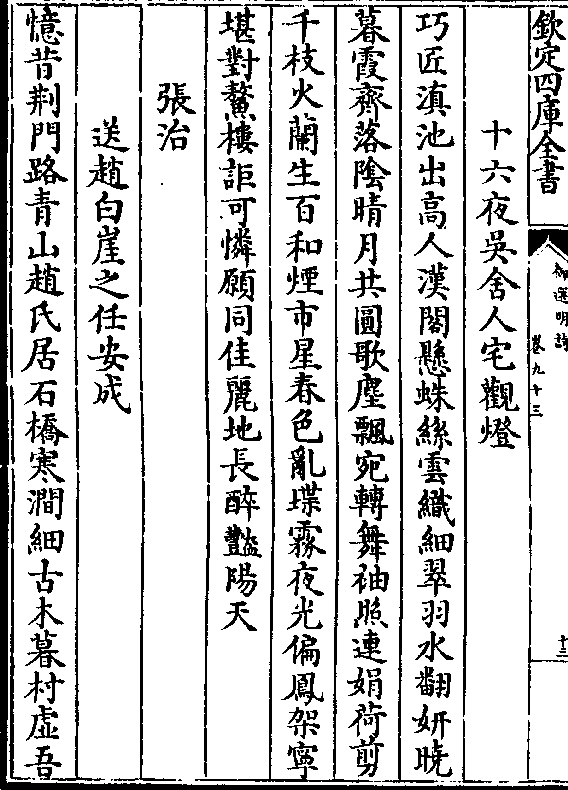 欽定四庫全書
御選明詩
卷九十三
十三
十六夜吳舍人宅觀燈
巧匠滇池出高人漢閣懸蛛絲雲織細翠羽水翻妍曉
暮霞齊落陰晴月共圓歌塵飄宛轉舞袖照連娟荷剪
千枝火蘭生百和煙市星春色亂堞霧夜光偏鳳架寧
堪對鰲樓詎可憐願同佳麗地長醉豔陽天
張治
送趙白崖之任安成
憶昔荆門路青山趙氏居石橋寒澗細古木暮村虛吾